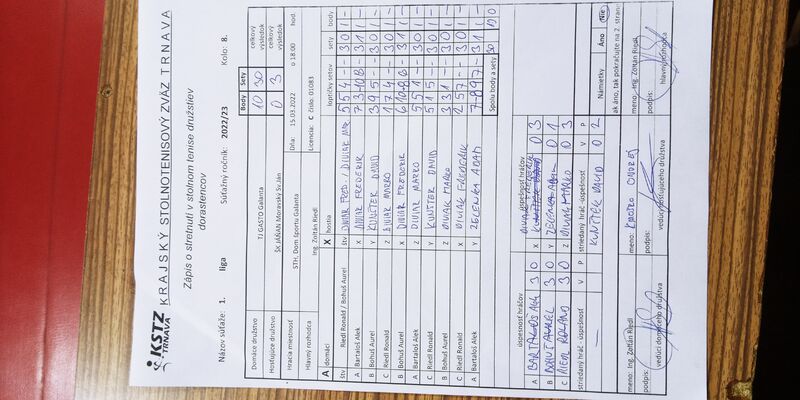 KSTZ
TRNAVA
KRAJSKÝ STOLNOTENISOVÝ ZVÄZ TRNAVA
Zápis o stretnutí v stolnom tenise družstiev
dorastencov
Názov súťaže: 1. liga Súťažný ročník: 2022/23 Kolo: 8.
Body Sety celkový výsledok
Domáce družstvo TJ GASTO Galanta 10 30 celkový výsledok
Hosťujúce družstvo ŠK JÁŇAN Moravský Sv.Ján 0 3
Hracia miestnosť STH, Dom športu Galanta Dňa: 15.03.2022 o 18.00 hod.
Hlavný rozhodca Ing. Zoltán Riedl Licencia: C číslo: 01083
A domáci X hostia loptičky setov sety body
štv Riedl Ronald / Bohuš Aurel štv DIVIAK FRED / DIVIAK MAR 5 5 4 - - 3 0 1 -
A Bartaloš Alek X DIVIAK FREDERIK 7 3 -10 8 - 3 1 1 -
B Bohuš Aurel Y KUNŠTEK DAVID 3 9 5 - - 3 0 1 -
C Riedl Ronald Z DIVIAK MARKO 1 7 4 - - 3 0 1 -
B Bohuš Aurel X DIVIAK FREDERIK 3 1 1 -
A Bartaloš Alek Z DIVIAK MARKO 5 5 1 - - 3 0 1 -
C Riedl Ronald Y KUNŠTEK DAVID 5 1 5 - - 3 0 1 -
B Bohuš Aurel Z DIVIAK MARKO 3 3 1 - - 3 0 1 -
C Riedl Ronald X DIVIAK FREDERIK 2 5 7 - - 3 0 1 -
A Bartaloš Alek Y ZELENKA ADAM 7 -8 9 7 - 3 1 1 -
Spolu body a sety 30 3 10 0
úspešnosť hráčov úspešnosť hráčov
A BARTALOŠ ALEK 3 0 X DIVIAK FREDERIK 0 3
B BOHUŠ AUREL 3 0 Y ZELENKA ADAM 0 1
C RIEDL RONALD 3 0 Z DIVIAK MARKO 0 3
striedaný hráč -úspešnosť V P striedaný hráč -úspešnosť V P
— KUNŠTEK DAVID 0 2
Námietky Áno Nie
ak áno, tak pokračujte na 2. strane
meno: Ing. Zoltán Riedl meno: ONDREJ meno: Ing. Zoltán Riedl
podpis: podpis: podpis:
vedúci domáceho družstva vedúci hosťujúceho družstva hlavný rozhodca